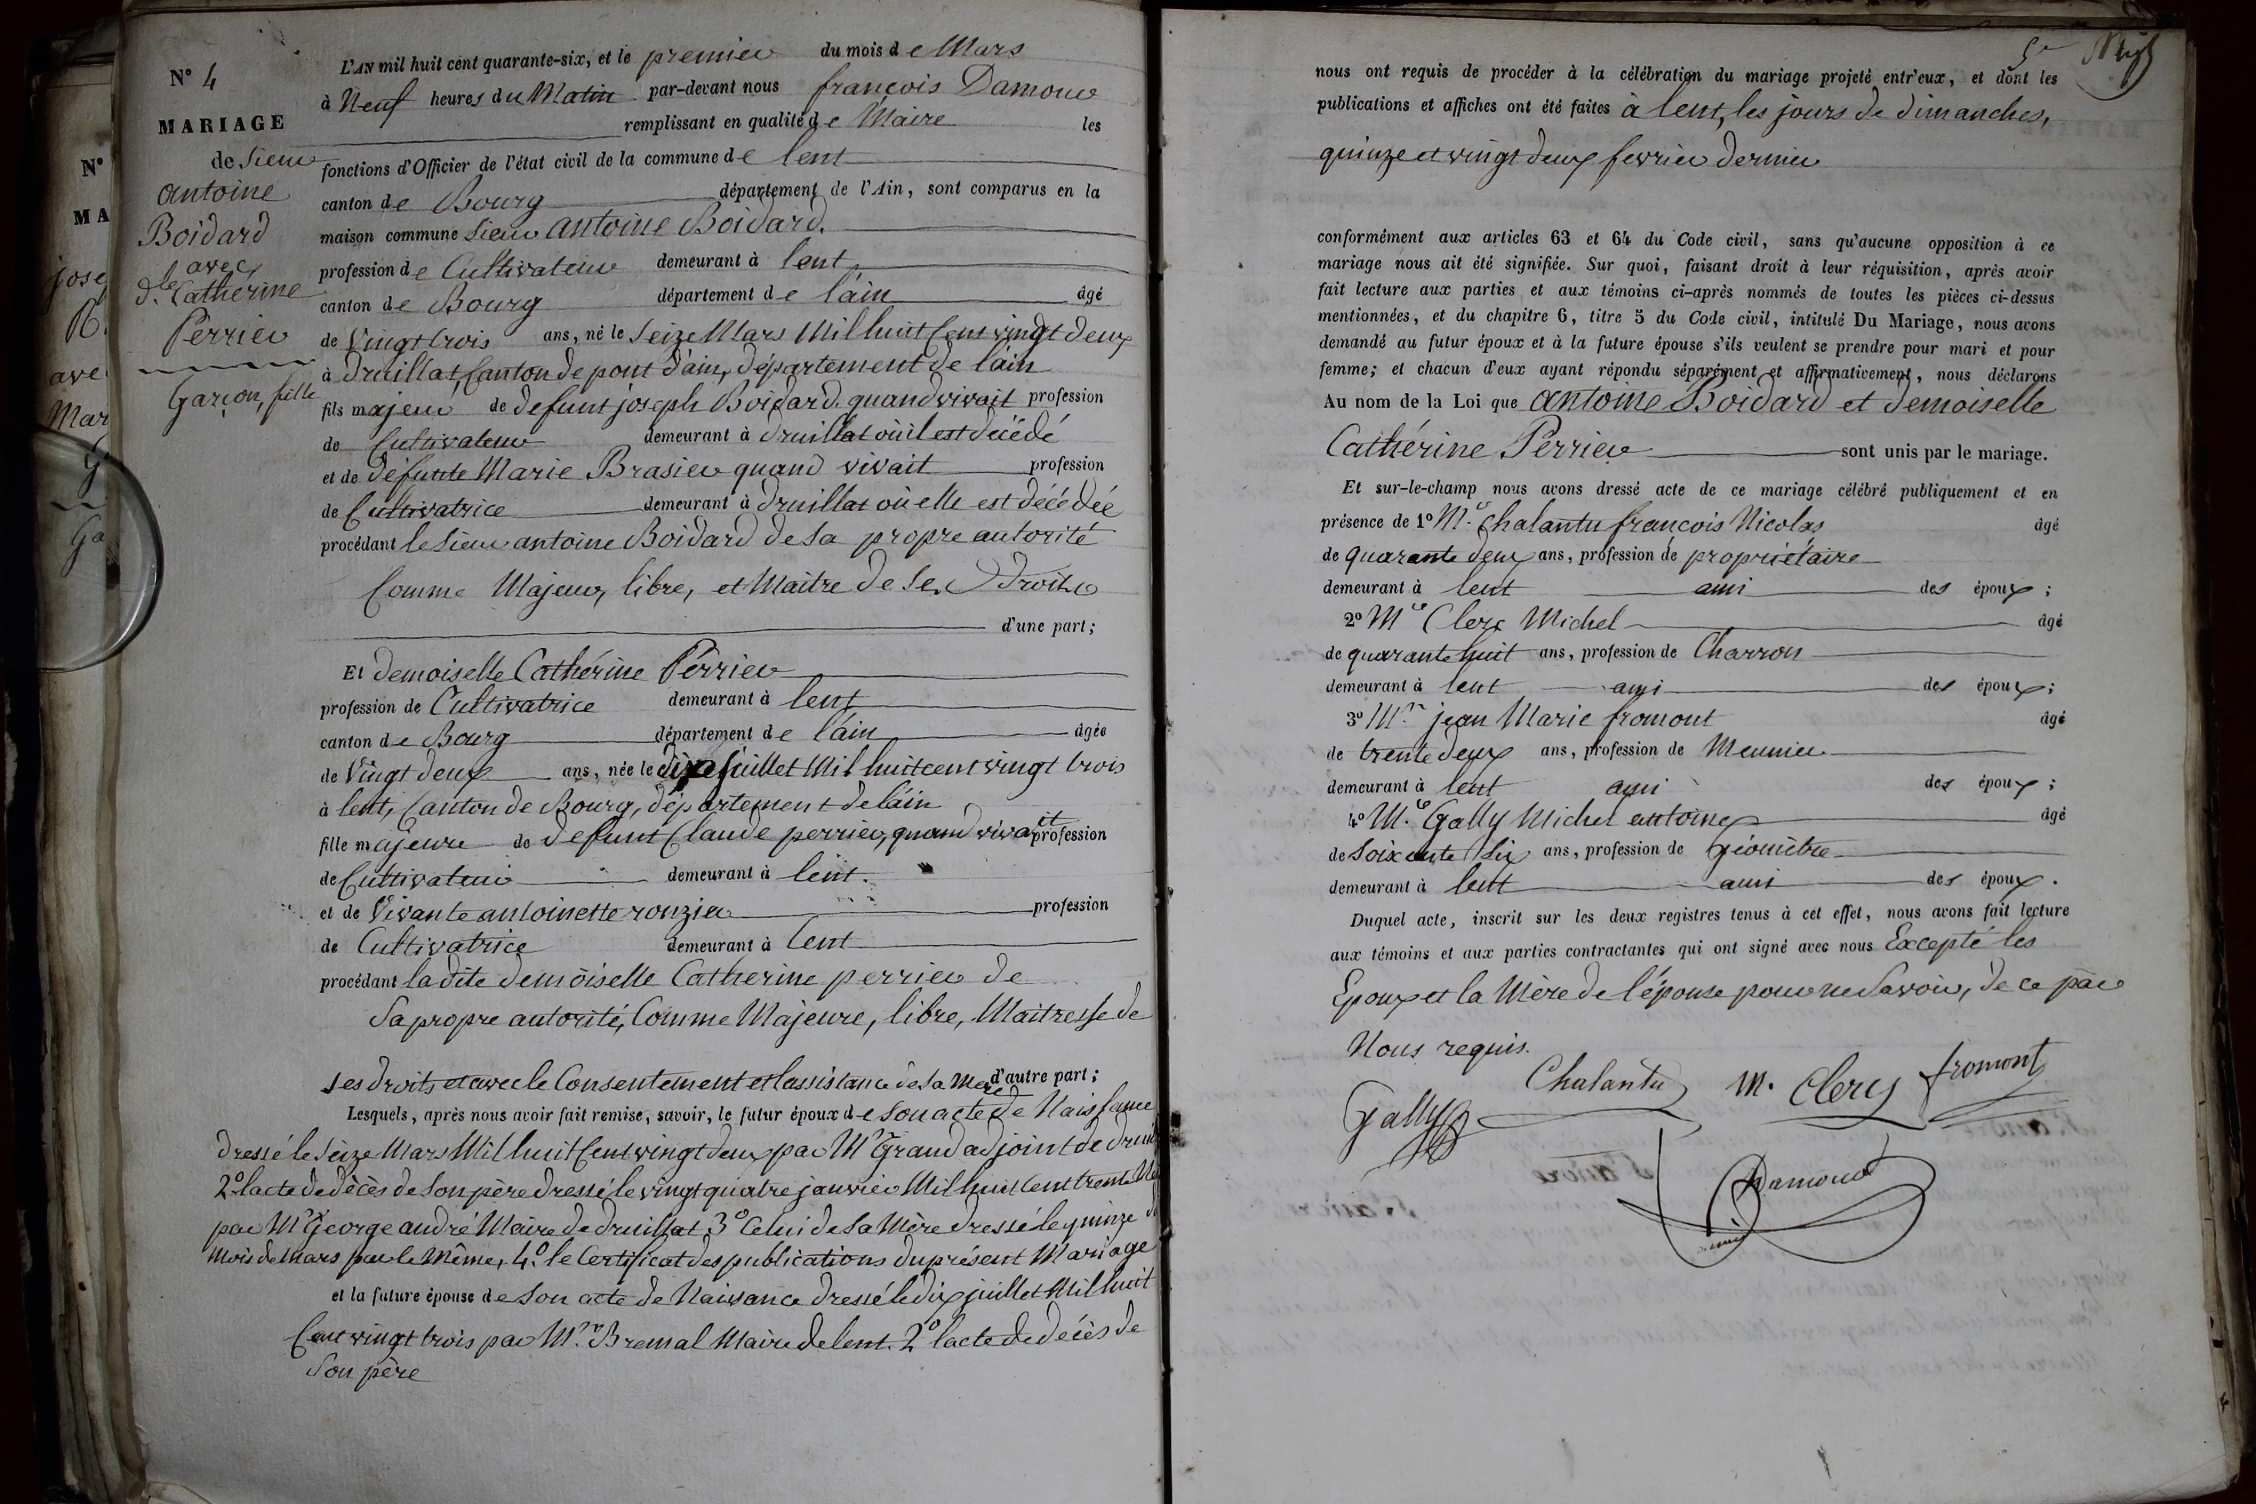 N° 4
MARIAGE
de Sieur
antoine
Boidard
avec
dlle Catherine
Perrier
Garçon, fille
L'AN mil huit cent quarante-six, et le premier du mois de Mars
à Neuf heures du Matin par-devant nous françois Damour
remplissant en qualité de Maire les
fonctions d'Officier de l'état civil de la commune de lent
canton de Bourg département de l'Ain, sont comparus en la
maison commune Sieur antoine Boidard.
profession de Cultivateur demeurant à lent
canton de Bourg département de l'ain âgé
de Vingt trois ans, né le Seize Mars Mil huit Cent vingt deux
à druillat, Canton de pont d'ain, département de l'ain
fils majeur de defunt joseph Boidard quand vivait profession
de Cultivateur demeurant à druillat où il est décédé
et de défunte Marie Brasier quand vivait profession
de Cultivatrice demeurant à druillat où elle est décédée
procédant le Sieur antoine Boidard de sa propre autorité
Comme Majeur, libre, et Maître de ses droits
d'une part;
Et demoiselle Cathérine Pérrier
profession de Cultivatrice demeurant à lent
canton de Bourg département de l'ain âgée
de Vingt deux ans, née le dix juillet Mil huit cent vingt trois
à lent, Canton de Bourg, département de l'ain
fille majeure de defunt Claude perrier, quand vivait profession
de Cultivateur demeurant à lent.
et de Vivante antoinette ronzier profession
de Cultivatrice demeurant à lent
procédant la dite demoiselle Catherine perrier de
Sa propre autorité, Comme Majeure, libre, Maitresse de
ses droits, et avec le Consentement et l'assistance de sa Mere d'autre part;
Lesquels, après nous avoir fait remise, savoir, le futur époux de son acte de Naissance
dressé le Seize Mars Mil huit Cent vingt deux par Mr Grand adjoint de
2° l'acte de décès de Son père dressé le vingt quatre janvier Mil huit Cent trente
par Mr George andré Maire de druillat 3° Celui de Sa Mère dressé le quinze
Mois de Mars par le Même, 4° le Certificat des publications du présent Mariage
et la future épouse de Son acte de Naissance dressé le dix juillet Mil huit
Cent vingt trois par Mr Bremal Maire de lent. 2° l'acte de décès de
Son père
nous ont requis de procéder à la célébration du mariage projeté entr'eux, et dont les
publications et affiches ont été faites à lent, les jours de dimanches,
quinze et vingt deux fevrier dernier
conformément aux articles 63 et 64 du Code civil, sans qu'aucune opposition à ce
mariage nous ait été signifiée. Sur quoi, faisant droit à leur réquisition, après avoir
fait lecture aux parties et aux témoins ci-après nommés de toutes les pièces ci-dessus
mentionnées, et du chapitre 6, titre 5 du Code civil, intitulé Du Mariage, nous avons
demandé au futur époux et à la future épouse s'ils veulent se prendre pour mari et pour
femme; et chacun d'eux ayant répondu séparément et affirmativement, nous déclarons
Au nom de la Loi que antoine Boidard et demoiselle
Cathérine Perrier sont unis par le mariage.
Et sur-le-champ nous avons dressé acte de ce mariage célébré publiquement et en
présence de 1° Mr Chalantu françois Nicolas âgé
de quarante deux ans, profession de propriétaire
demeurant à lent ami des époux;
2° Mr Clerc Michel âgé
de quarante huit ans, profession de Charron
demeurant à lent ami des époux;
3° Mr jean Marie fromont âgé
de trente deux ans, profession de Meunier
demeurant à lent ami des époux;
4° Mr Gally Michel antoine âgé
de soixante six ans, profession de géomètre
demeurant à lent ami des époux.
Duquel acte, inscrit sur les deux registres tenus à cet effet, nous avons fait lecture
aux témoins et aux parties contractantes qui ont signé avec nous Excepté les
Epoux et la Mère de l'épouse pour ne Savoir, de ce par
Nous requis.
Chalantu M. Clerc fromont
Gally
Damour